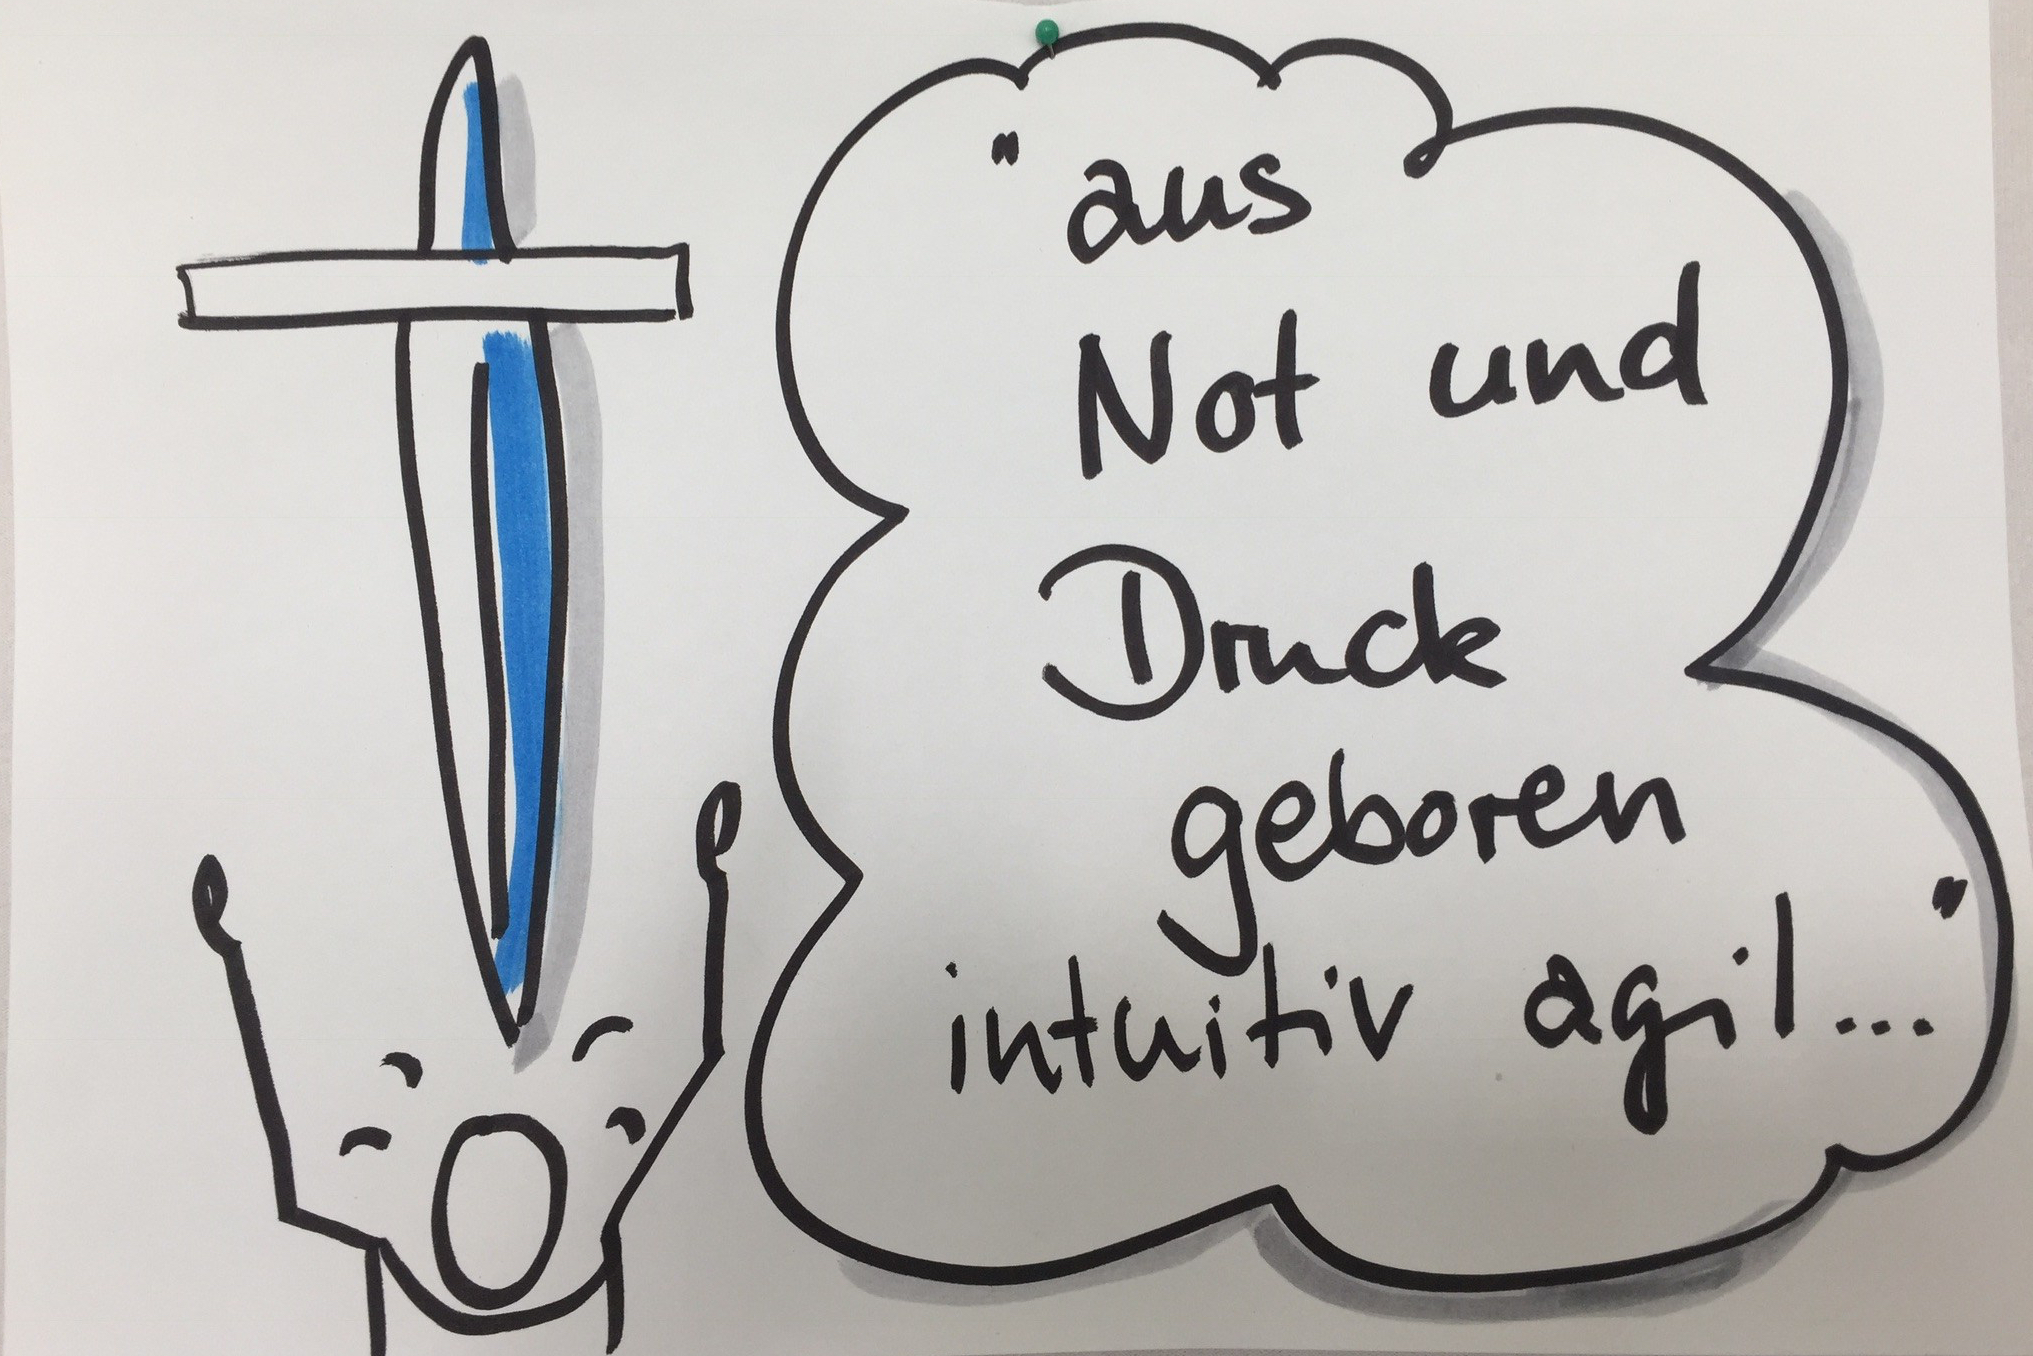 " aus
Not und
Druck
geboren
intuitiv agil... "